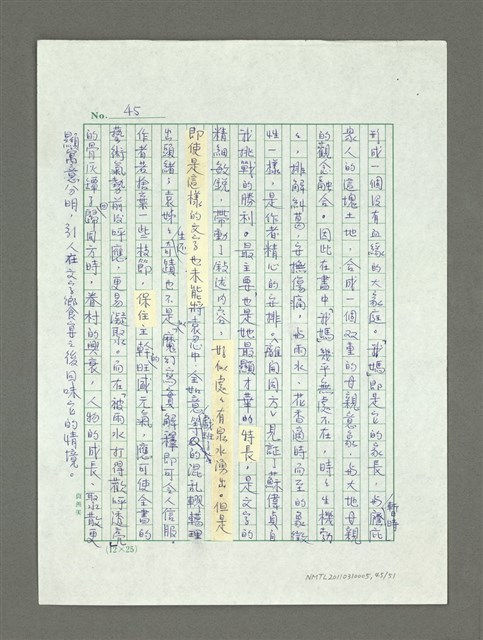 No. 45
形成一個沒有血緣的大家庭。「我媽」即是它的家長,也象庇暫時
眾人的這塊土地,合成一個雙重的母親意象,與大地母親
的觀念融合。因此在書中「我媽」幾乎無處不在,時時生機動
,排解糾葛,安撫傷痛,如雨水、花香適時而至的象徵
性一樣,是作者精心的安排。「離開同方」見証了蘇偉貞自
我挑戰的勝利。最主要也是她最顯才華的特長,是文字的
精細敏銳,帶動了敘述內容,好似處處有泉水湧出。但是
即使是這樣的文字也未能將袁忍中、全如意、李政的混亂轇轕理
出頭緒;袁姊生還奇蹟也不是「魔幻寫實」解釋即可令人信服。
作者若捨棄一些枝節,保住主幹的旺盛元氣,應可使全書的
藝術氣勢前後呼應,更易凝聚。而在「被雨水打得歡呼透亮」
的骨灰罈子歸回同方時,眷村的興衰,人物的成長、聚散更
顯寓意分明,引人在文字饗宴之後回味它的情境。
(12×25)
NMTL20110310005,43/51